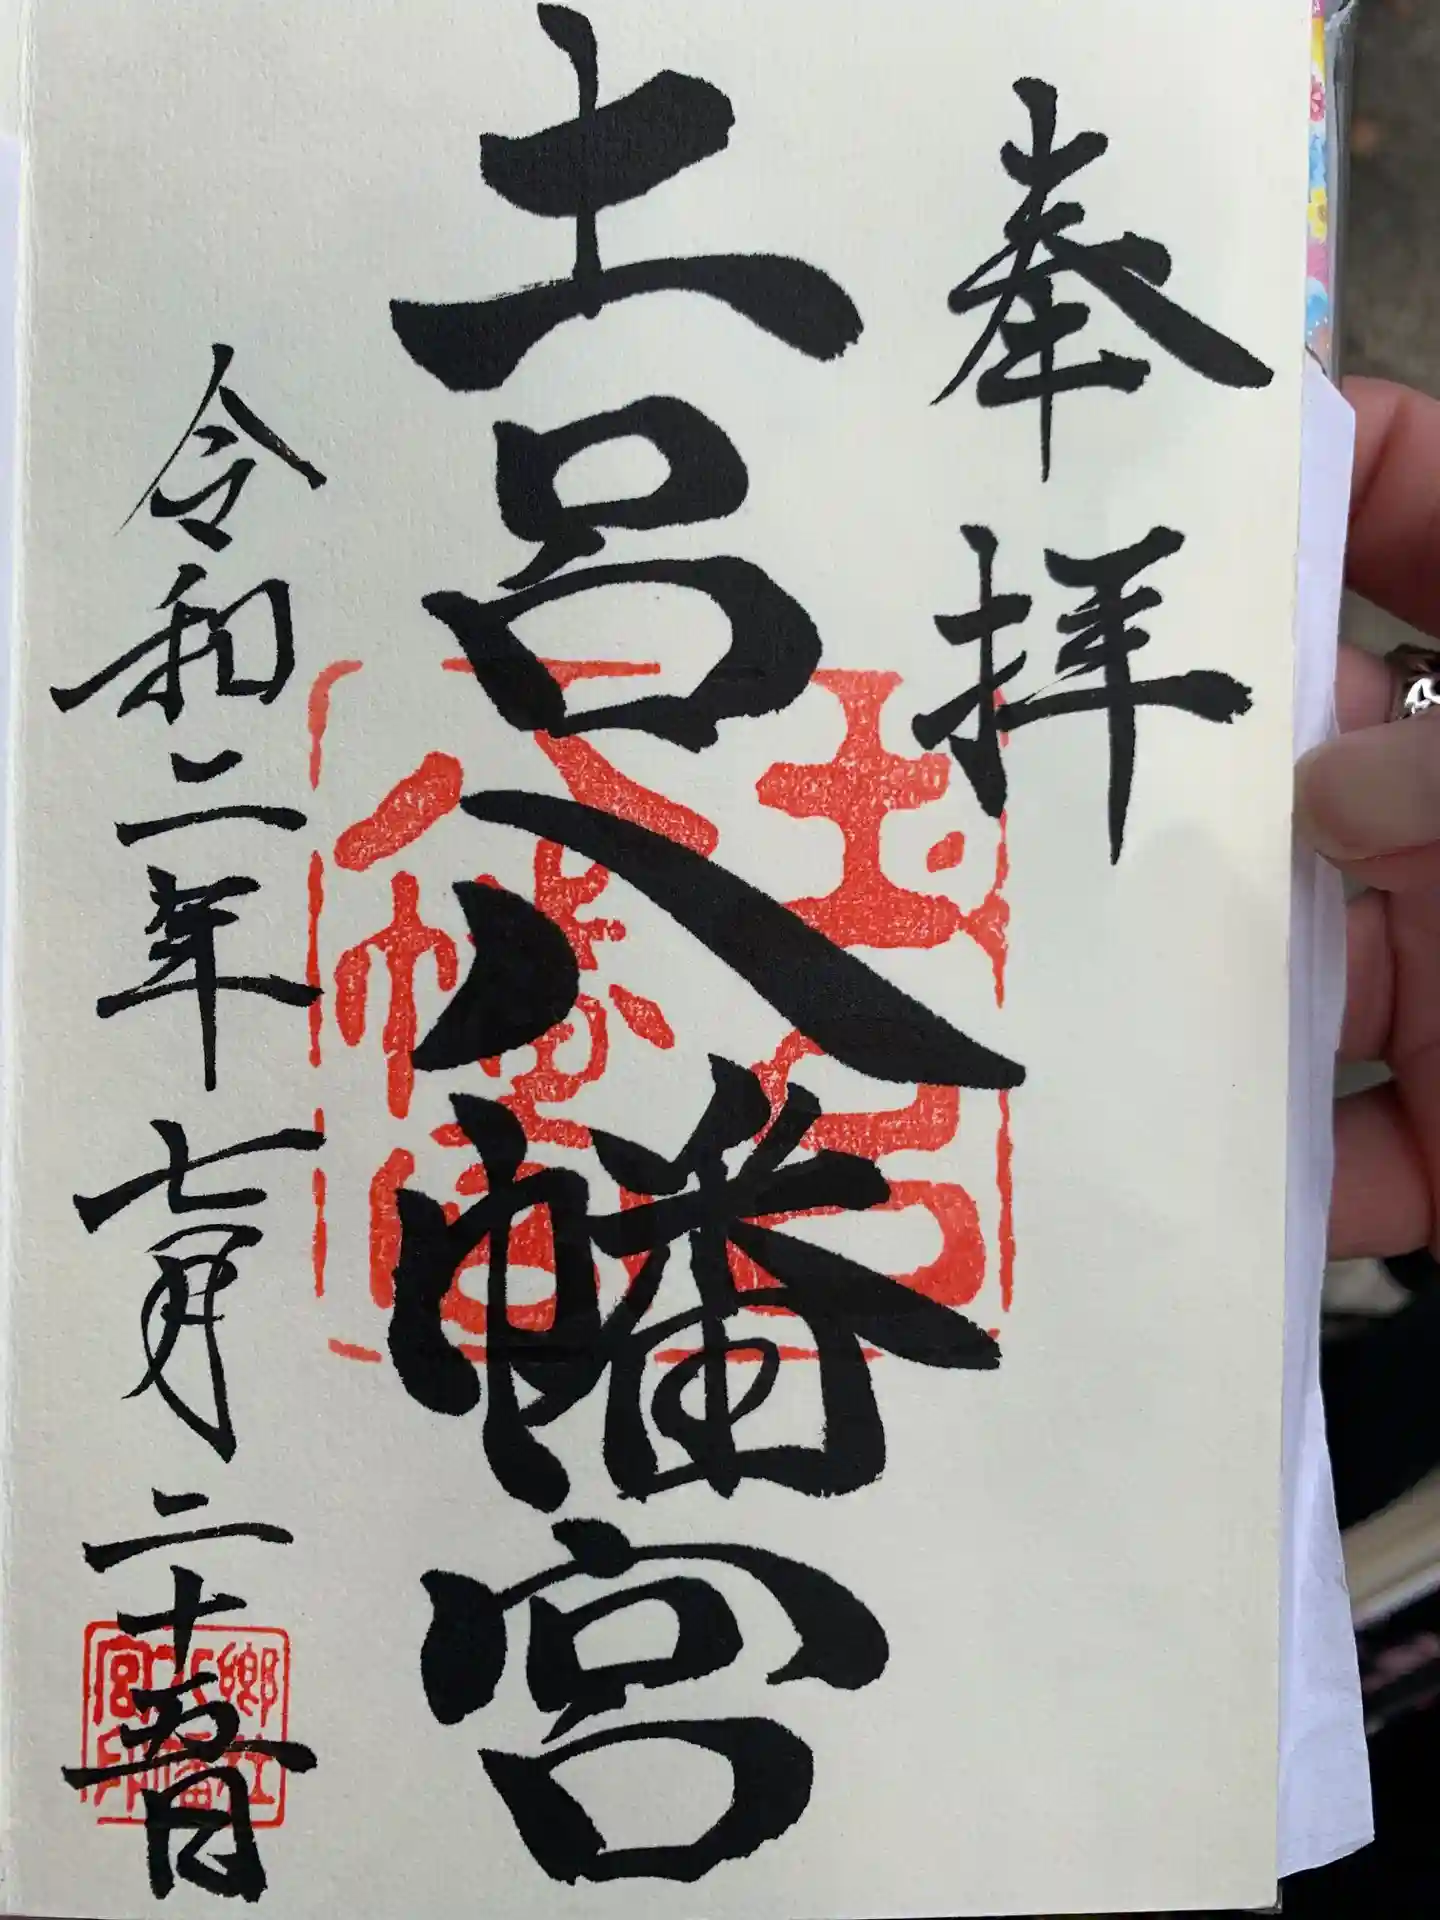 奉拝
土呂八幡宮
令和二年七月二十五日
郷社
八幡
宮印